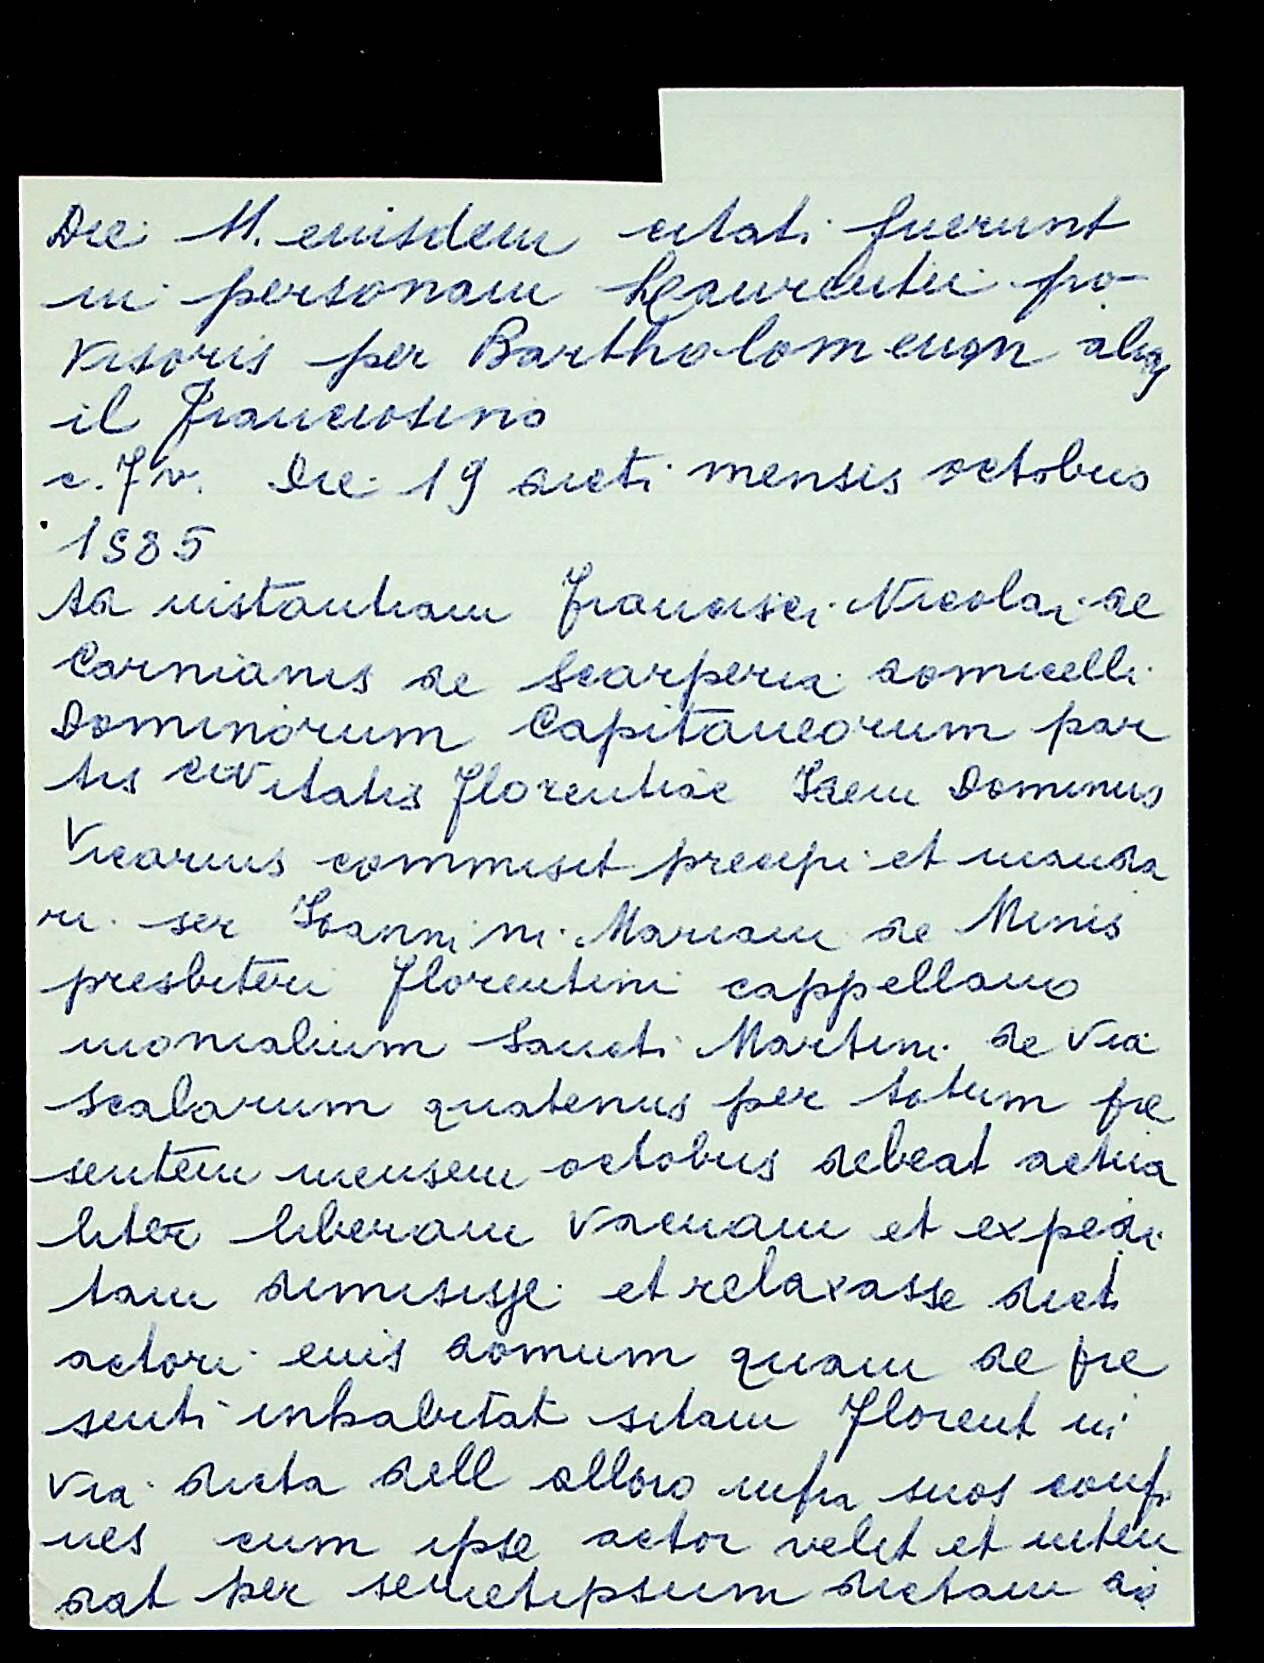 Die 11. eiusdem citati fuerunt
in personam Laurentii pro
visoris per Bartholomeum alias
il franciosino
c. 7 v. Die 19 dicti mensis octobris
1585
Ad instantiam Francisci Nicolai de
Carnianis de Scarperia domicelli
Dominorum Capitaneorum par
tis civitatis florentiae Idem Dominus
Vicarius commisit precipi et manda
ri ser Ioanni Mariam de Minis
presbiteri florentini cappellano
monialium Sancti Martini de via
scalarum quatenus per totum pre
sentem mensem octobris debeat actua
liter liberam vacuam et expedi
tam dimisisse et relaxasse dicti
actori eius domum quam de pre
senti inhabitat sitam florent in
via dicta dell alloro infra suos confi
nes cum ipse actor velit et inten
dat per semetipsum dictam